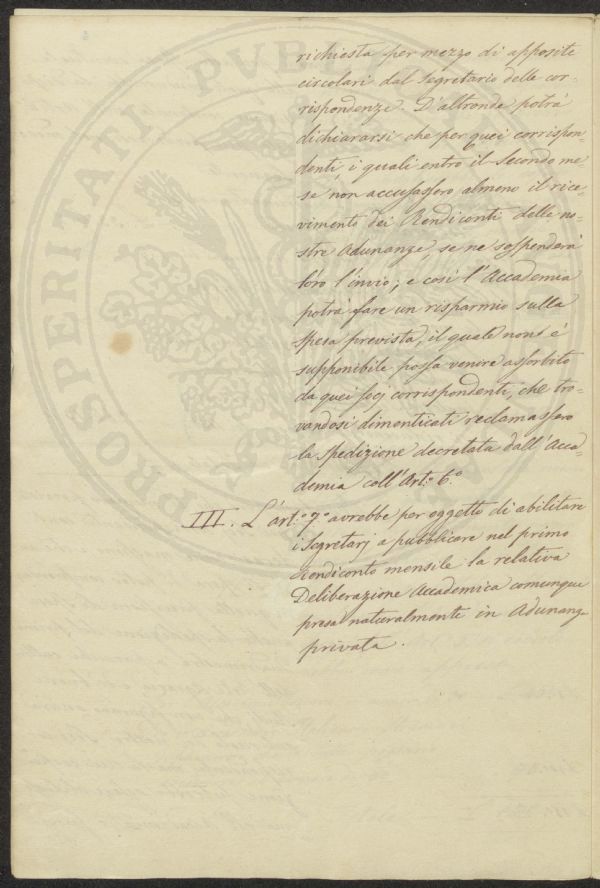 richiesta per mezzo di apposite
circolari dal Segretario delle cor-
rispondenze. D'altronde potrà
dichiararsi che per quei corrispon-
denti, i quali entro il Secondo me
se non accusassero almeno il rice-
vimento dei Rendiconti delle no-
stre Adunanze, se ne sospenderà
loro l'invio; e così l'Accademia
potrà fare un risparmio sulla
spesa prevista, il quale non è
supponibile possa venire assorbito
da quei socj corrispondenti, che tro-
vandosi dimenticati reclamassero
la spedizione decretata dall'Acca-
demia coll'Art.º 6.º
III. L'art.º 7º avrebbe per oggetto di abilitare
i Segretarj a pubblicare nel primo
Rendiconto mensile la relativa
Deliberazione Accademica comunque
presa naturalmente in Adunanza
privata.
PROSPERITATI PUBL